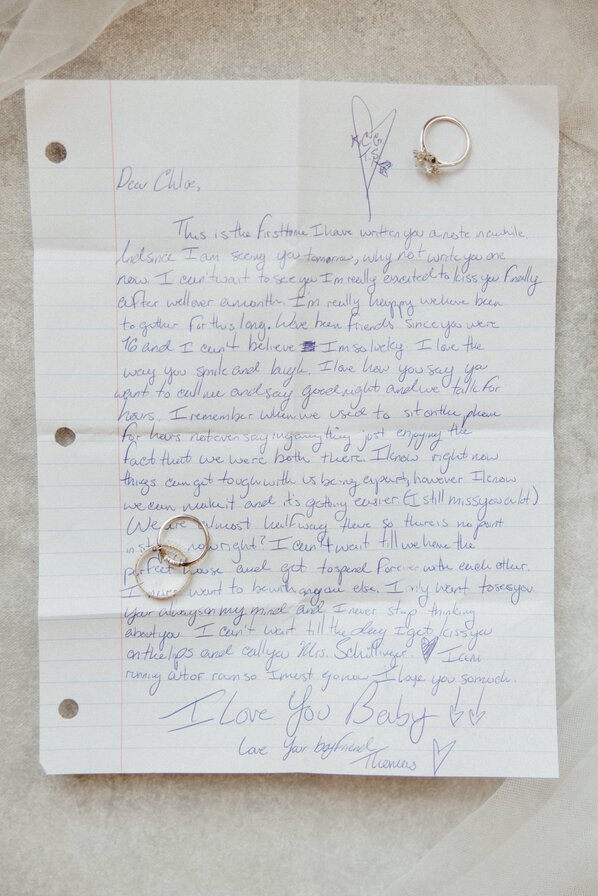 KC &
TS
Dear Chloe,
This is the first time I have written you a note in awhile.
And since I am seeing you tomorrow, why not write you one
now. I can't wait to see you I'm really excited to kiss you finally
after well over a month. I'm really happy we have been
together for this long. We've been friends since you were
16 and I can't believe I'm so lucky. I love the
way you smile and laugh. I love how you say you
want to call me and say goodnight and we talk for
hours. I remember when we used to sit on the phone
for hours not even saying anything just enjoying the
fact that we were both there. I know right now
things can get tough with us being apart, however I know
we can make it and it's getting easier. (I still miss you a lot)
We are almost half way there so there is no point
in now right? I can't wait till we have the
perfect house and get to spend forever with each other.
I want to be with anyone else. I only want to see you.
Your always on my mind and I never stop thinking
about you. I can't wait till the day I get kiss you
on the lips and call you Mrs. I am
running out of room so I must go now. I love you so much.
I Love You Baby
Love Your boyfriend
Thomas